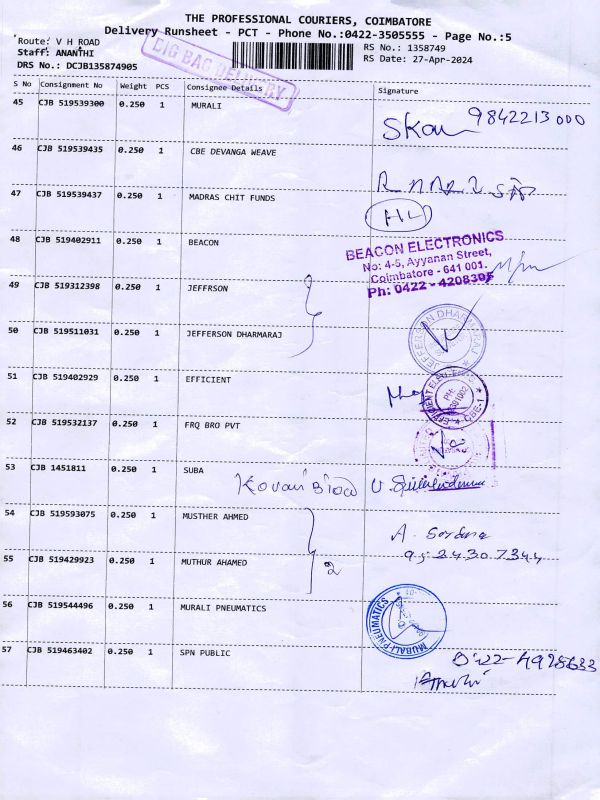 THE PROFESSIONAL COURIERS, COIMBATORE
Delivery Runsheet - PCT - Phone No.:0422-3505555 - Page No.:5
Route: V H ROAD
Staff: ANANTHI
DRS No.: DCJB135874905
RS No.: 1358749
RS Date: 27-Apr-2024
DIG BAG DELIVERY
S No Consignment No Weight PCS Consignee Details Signature
45 CJB 519539300 0.250 1 MURALI
9842213000
46 CJB 519539435 0.250 1 CBE DEVANGA WEAVE
47 CJB 519539437 0.250 1 MADRAS CHIT FUNDS
48 CJB 519402911 0.250 1 BEACON
BEACON ELECTRONICS
No: 4-5, Ayyanan Street,
Coimbatore - 641 001.
Ph: 0422 - 4208305
49 CJB 519312398 0.250 1 JEFFRSON
50 CJB 519511031 0.250 1 JEFFERSON DHARMARAJ
JEFFERSON DHARMARAJ
51 CJB 519402929 0.250 1 EFFICIENT
52 CJB 519532137 0.250 1 FRQ BRO PVT
53 CJB 1451811 0.250 1 SUBA
54 CJB 519593075 0.250 1 MUSTHER AHMED
55 CJB 519429923 0.250 1 MUTHUR AHAMED
2
56 CJB 519544496 0.250 1 MURALI PNEUMATICS
MURALI PNEUMATICS
57 CJB 519463402 0.250 1 SPN PUBLIC